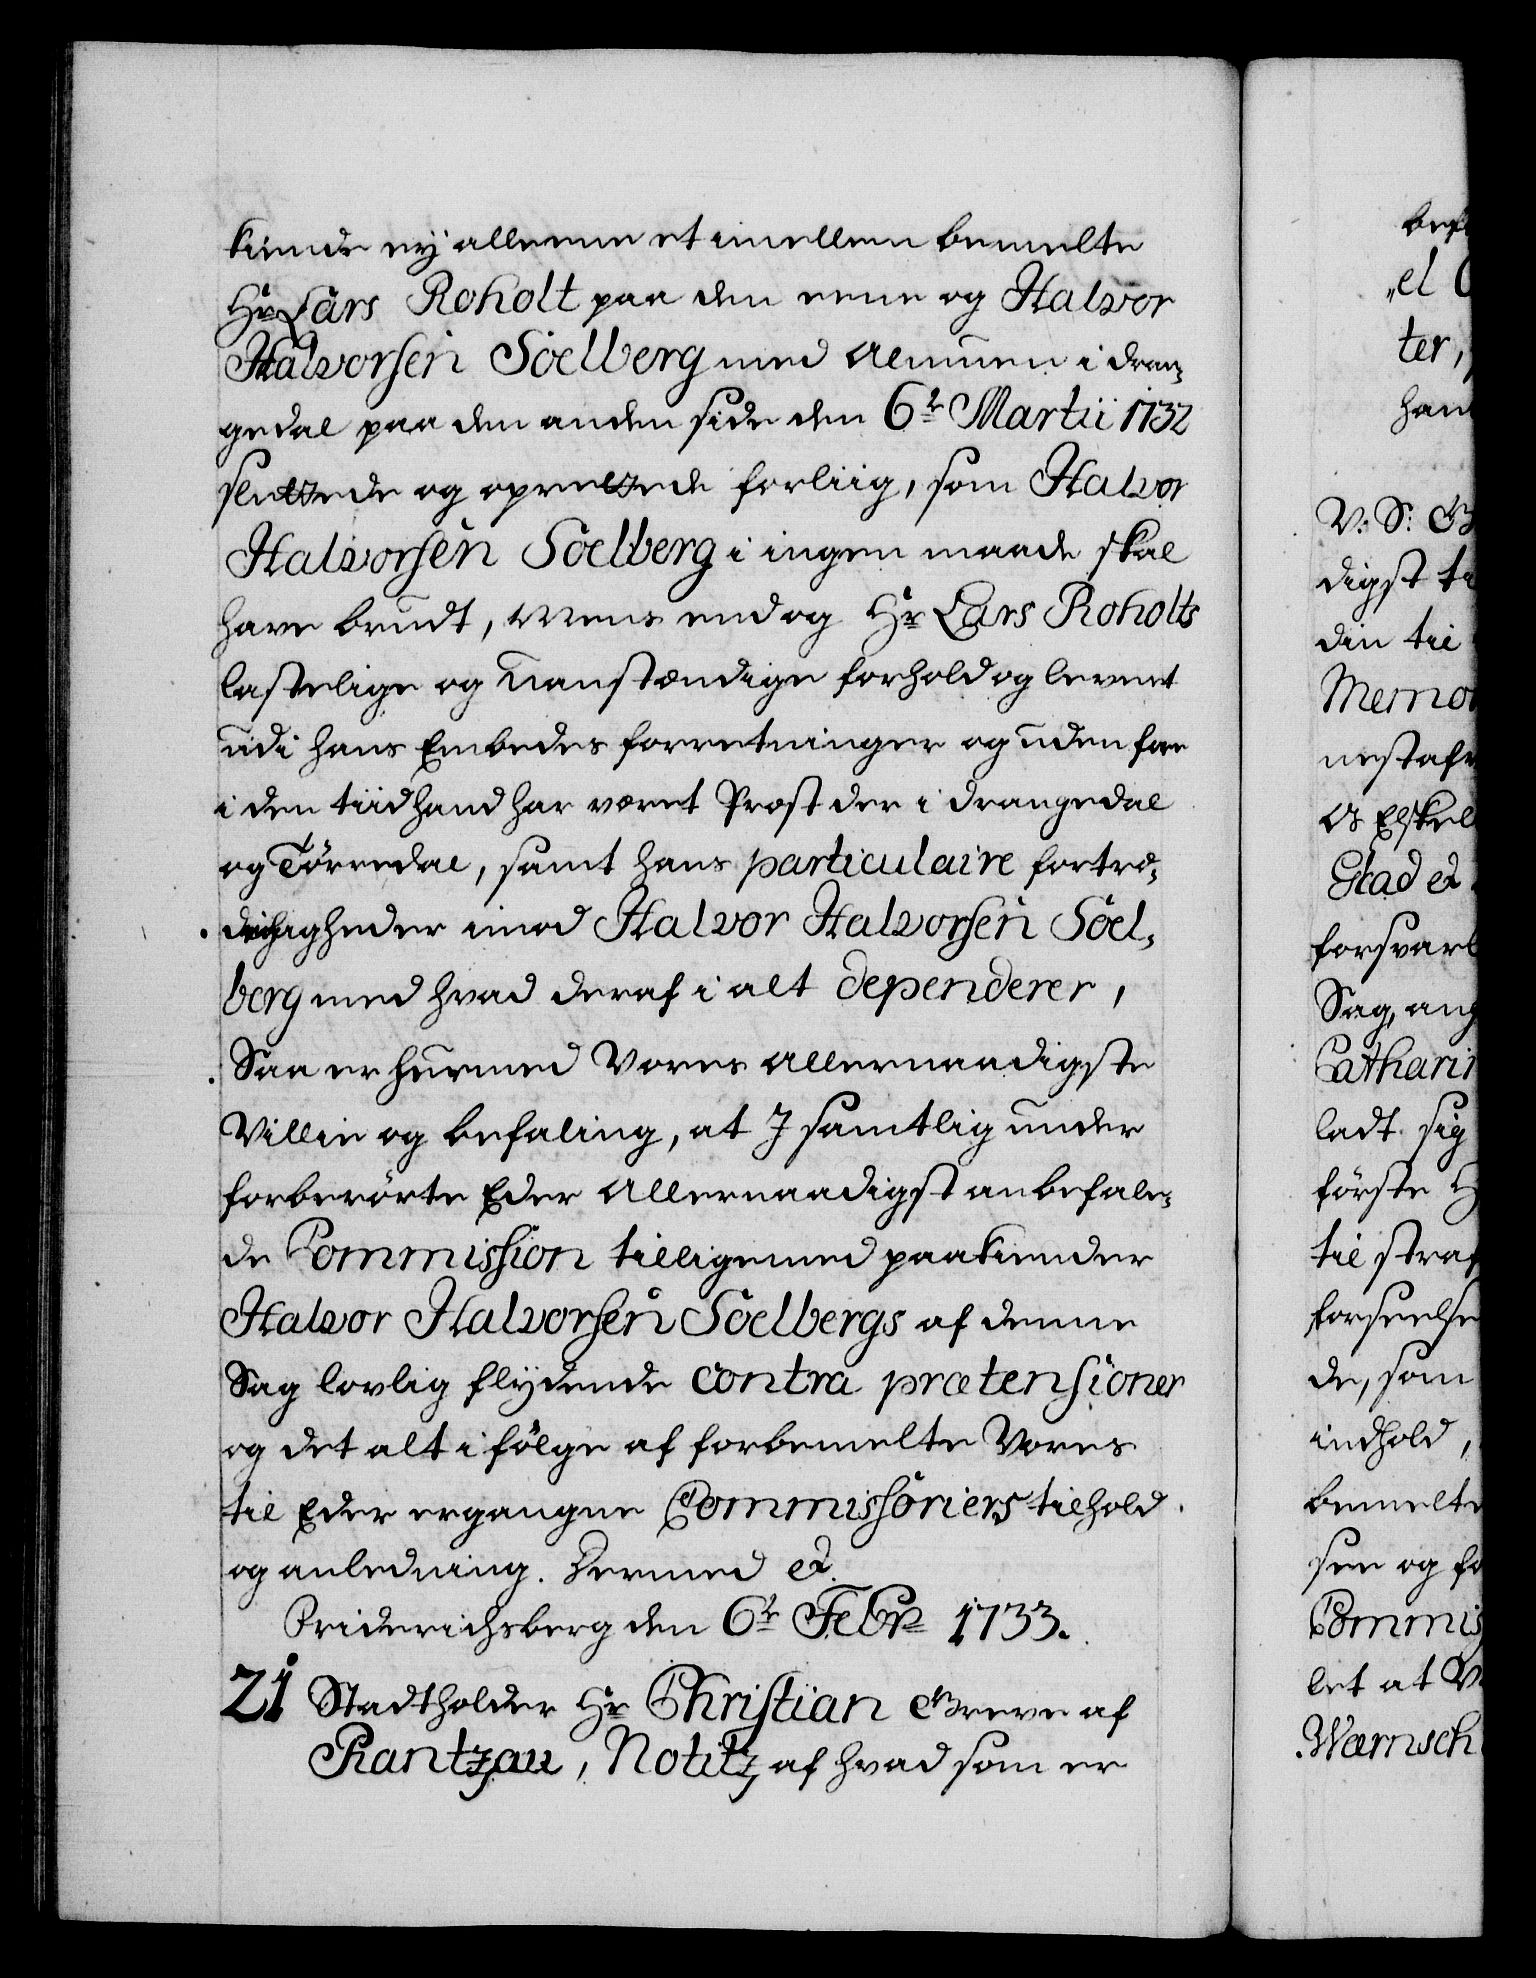 kiende ej alleene et imellem bemelte
Hr Lars Roholt paa den eene og Halvor
Halvorsen Söelberg med Almuen i Dran-
gedal paa den anden side den 6te Martii 1732
sluttede og oprettede forliig, som Halvor
Halvorsen Söelberg i ingen maade skal
have brudt, Mens endog Hr Lars Roholts
lastelige og uanstændige forhold og levnet
udi hans Embedes forretninger og uden for
i den tiid hand har været Præst der i Drangedal
og Tørredal, samt hans particulaire fortræ-
delighæder imod Halvor Halvorsen Söel-
berg med hvad deraf i alt dependerer,
Saa er hermed Vores allernaadigste
Villie og befaling, at I samtlig under
forberørte Eder Allernaadigst anbefale-
de Commission tilligemed paakiender
Halvor Halvorsen Söelbergs af denne
Sag lovlig flydende contra prætensioner
og det alt i følge af forbemelte Vores
til Eder ergangne Commissoriers tilhold
og anledning. Dermed &.
Friderichsberg den 6te Febr. 1733.
21 Stadtholder Hr Christian Greve af
Rantzau, Notitz af hvad som er
el
ter,
V: S:
digst
din til
nestafv
forsvarl
Sag, ang
ladt sig
første
til straf
forseelse
de, som
indhold,
bemelte
see og fo
Commis
let at